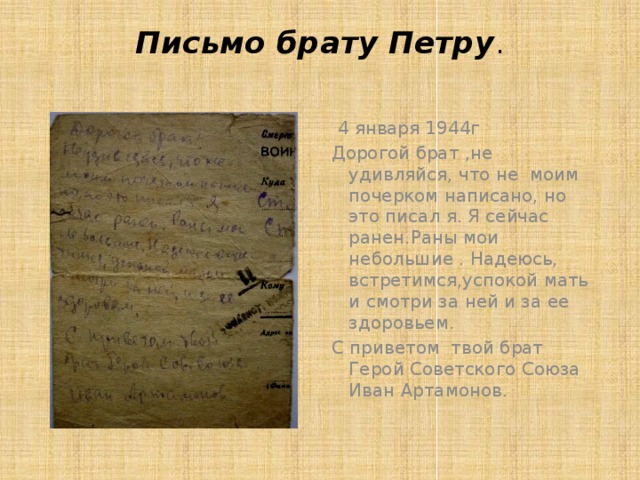 Письмо брату Петру.
Дорогой брат!
Не удивляйся, что не
моим почерком
но это писал Я
ранен. Раны мои
Надеюсь
С приветом твой
брат Герой Сов. Союза
Иван Артамонов
Смерть
ВОИН
Куда
Ст.
Ст.
Кому
4 января 1944г
Дорогой брат ,не
удивляйся, что не моим
почерком написано, но
это писал я. Я сейчас
ранен.Раны мои
небольшие . Надеюсь,
встретимся,успокой мать
и смотри за ней и за ее
здоровьем.
С приветом твой брат
Герой Советского Союза
Иван Артамонов.